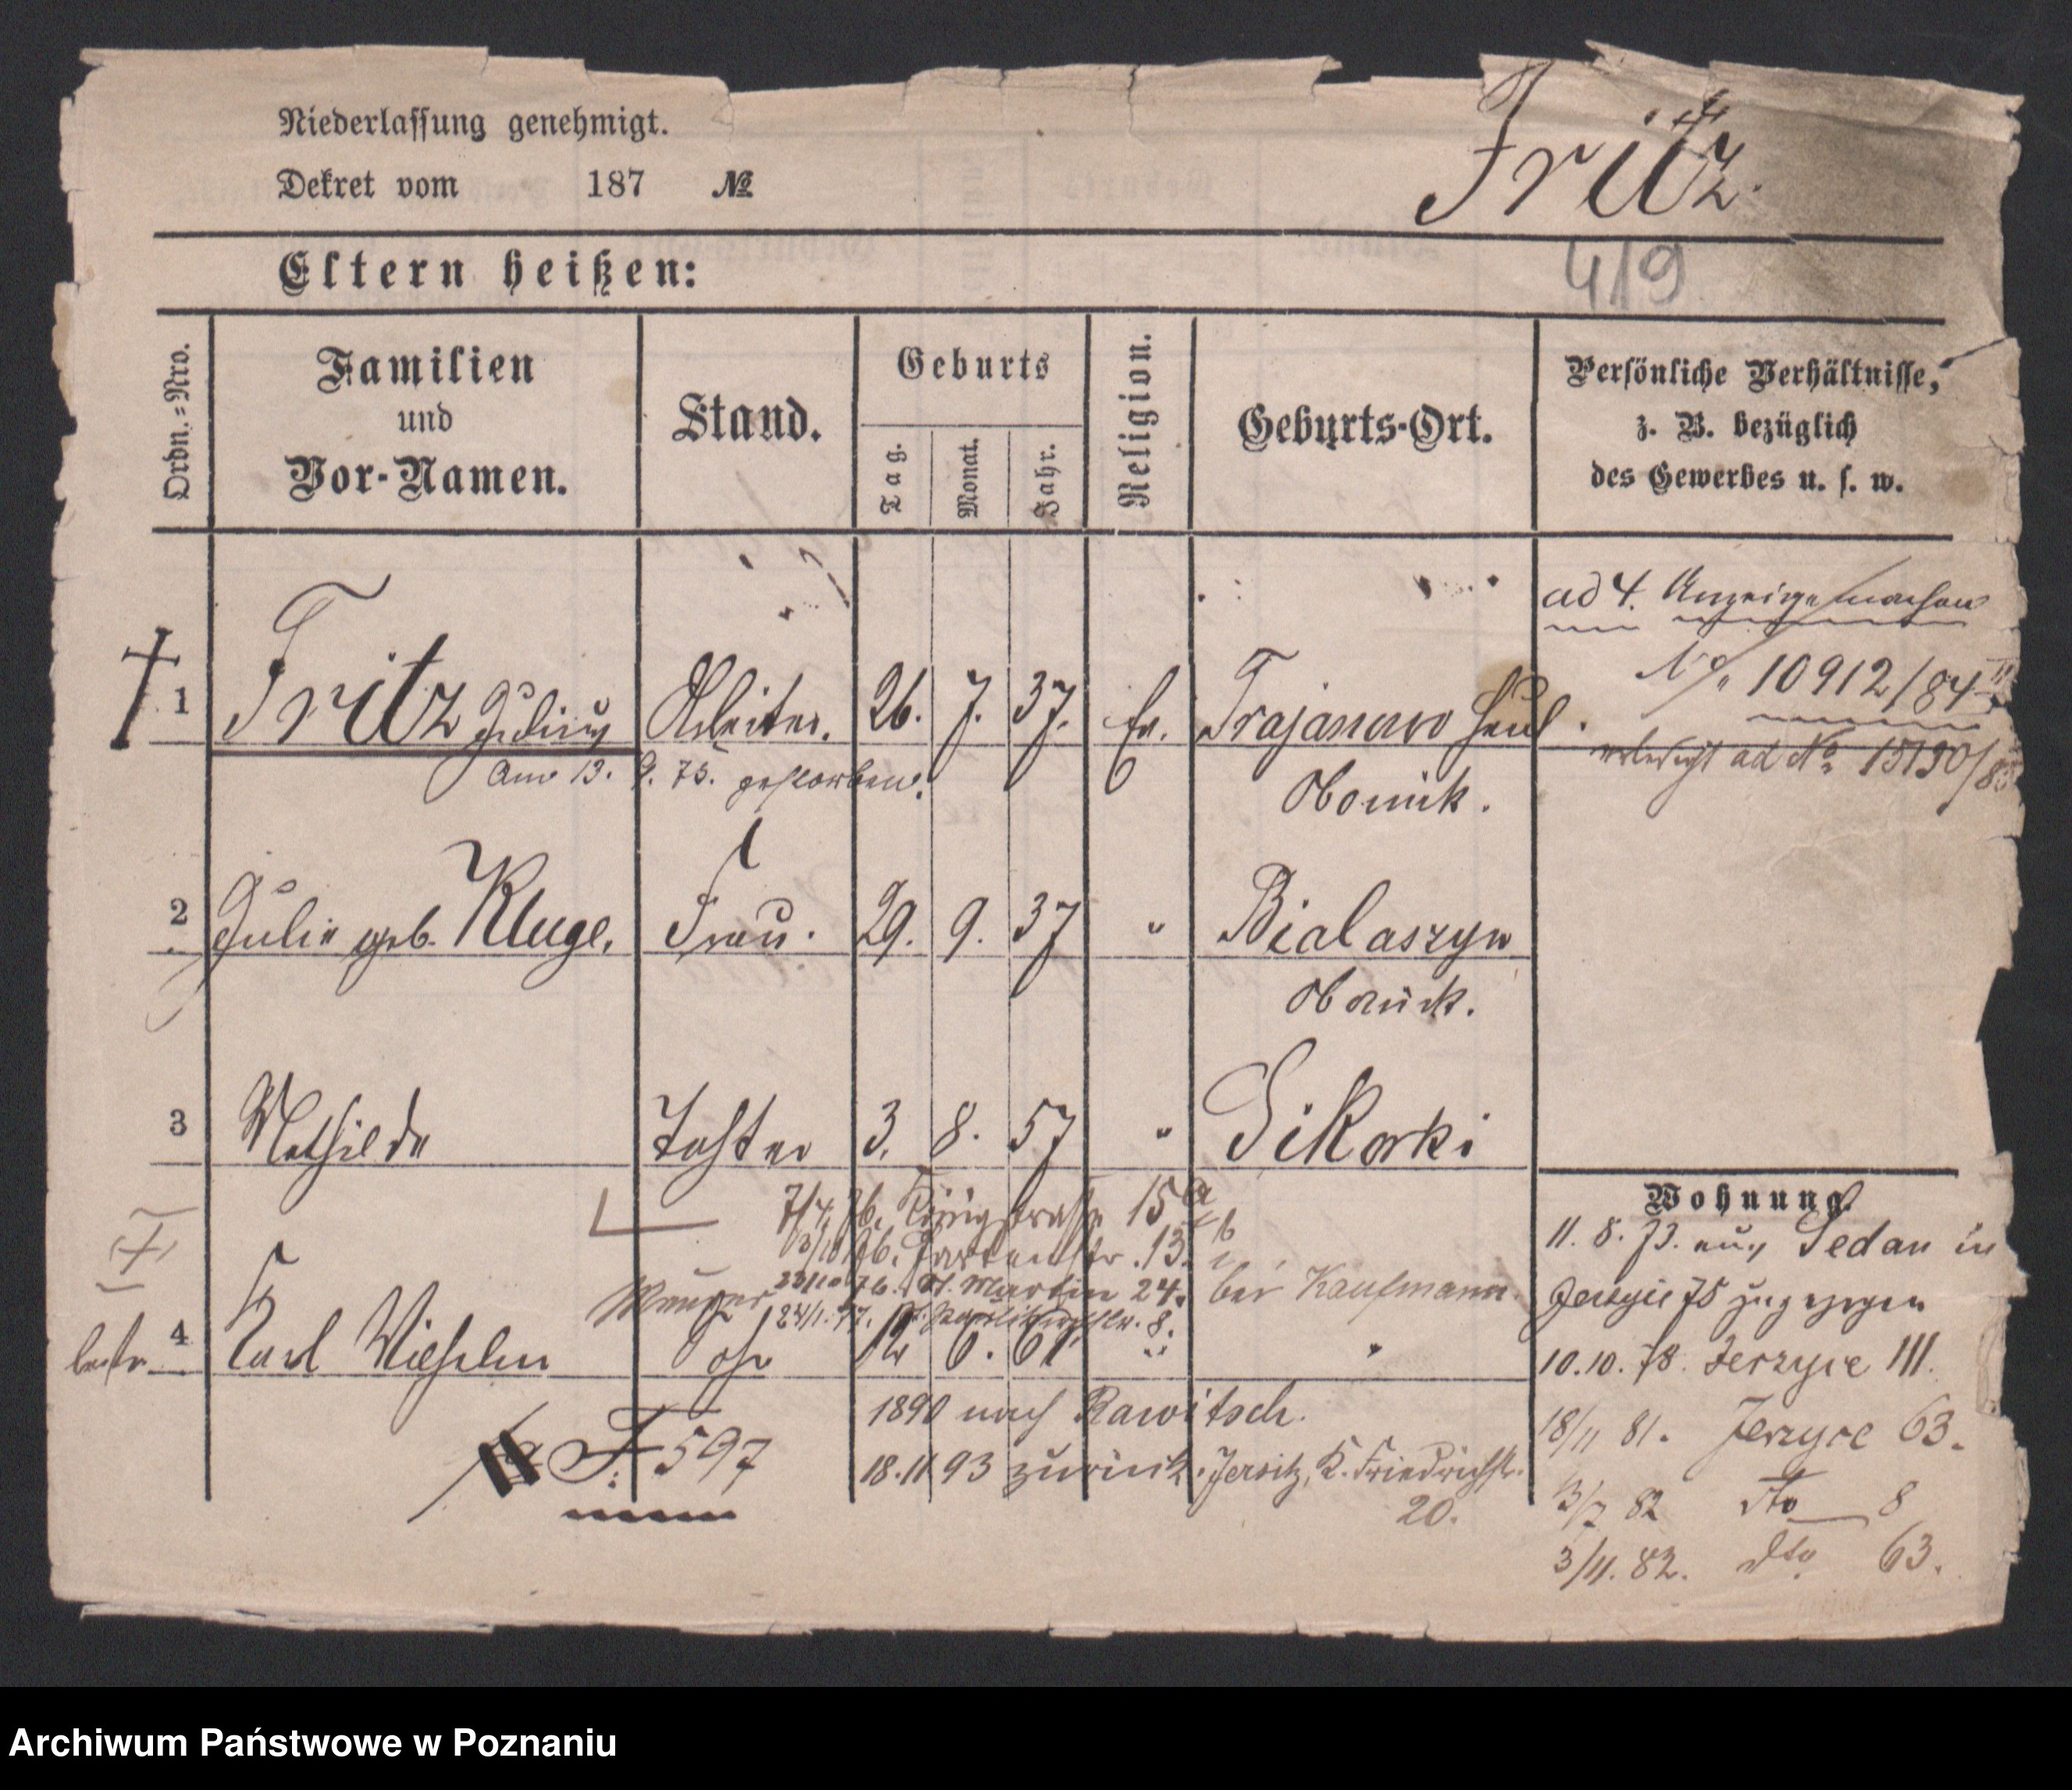 Niederlassung genehmigt.
Dekret vom 187 №
Fritz.
Eltern heißen:
419
Ordn.=Nro.
Familien
und
Vor-Namen.
Stand.
Geburts
Tag.
Monat.
Jahr.
Religion.
Geburts-Ort.
Persönliche Verhältnisse,
z. B. bezüglich
des Gewerbes u. s. w.
ad 4. Anzeige machen
№ 10912/84
erledigt ad No 15190/8
1 Fritz Julius Arbeiter. 26. 7. 37. Ev. Trajanowo Haul
am 13. 9. 75. gestorben.
Obornik.
2 Julie geb. Kluge. Frau. 29. 9. 37 " Bialaszyn
Obornik.
3 Mathilde Tochter 3. 8. 57 " Sikorki
7/4. 76. Königstrasse 15a
3/10 76. Gartenstr. 13.
23/10 76. St. Martin 24. bei Kaufmann.
24/1. 77. 8.
4 Karl Wilhelm 12 6. 61 "
1890 nach Rawitsch.
18.11 93 zurück. Jersitz, K. Friedrichstr.
20.
F 597
Wohnung.
11. 8. 73. aus Sedan in
Jerzyce 75 zugezogen
10.10.78. Jerzyce 111.
18/11 81. Jerzyce 63.
3/7 82 dto 8
3/11. 82. dto. 63.
Archiwum Państwowe w Poznaniu